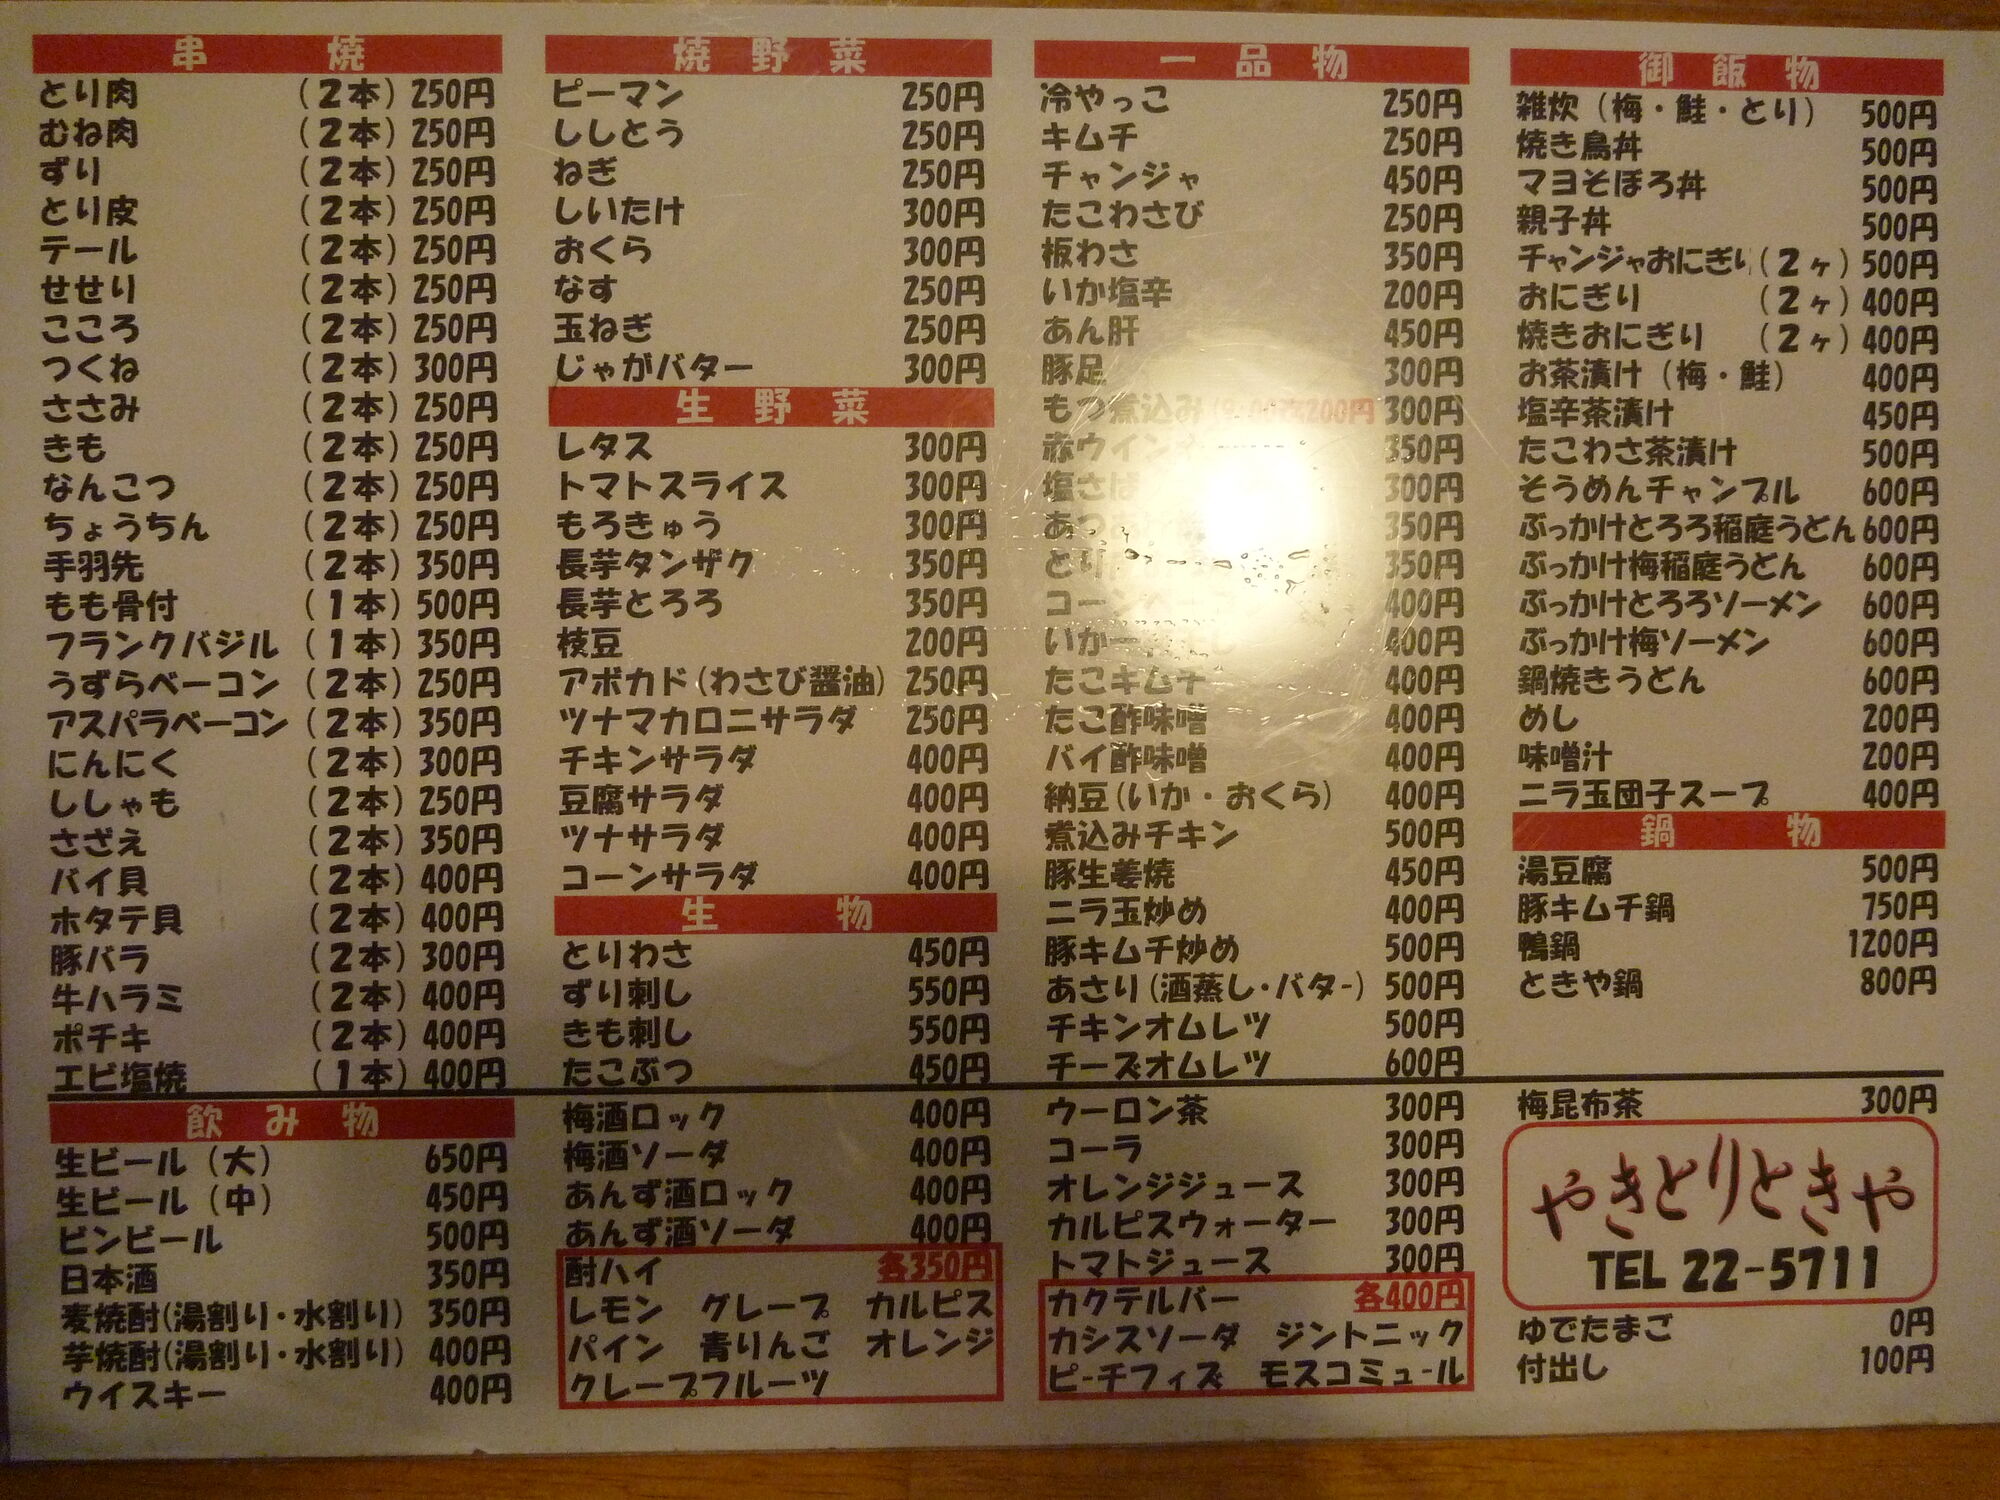 串焼
とり肉 (2本) 250円
むね肉 (2本) 250円
ずり (2本) 250円
とり皮 (2本) 250円
テール (2本) 250円
せせり (2本) 250円
こころ (2本) 250円
つくね (2本) 300円
ささみ (2本) 250円
きも (2本) 250円
なんこつ (2本) 250円
ちょうちん (2本) 250円
手羽先 (2本) 350円
もも骨付 (1本) 500円
フランクバジル (1本) 350円
うずらベーコン (2本) 250円
アスパラベーコン (2本) 350円
にんにく (2本) 300円
ししゃも (2本) 250円
さざえ (2本) 350円
バイ貝 (2本) 400円
ホタテ貝 (2本) 400円
豚バラ (2本) 300円
牛ハラミ (2本) 400円
ポチキ (2本) 400円
エビ塩焼 (1本) 400円
焼野菜
ピーマン 250円
ししとう 250円
ねぎ 250円
しいたけ 300円
おくら 300円
なす 250円
玉ねぎ 250円
じゃがバター 300円
生野菜
レタス 300円
トマトスライス 300円
もろきゅう 300円
長芋タンザク 350円
長芋とろろ 350円
枝豆 200円
アボカド(わさび醤油) 250円
ツナマカロニサラダ 250円
チキンサラダ 400円
豆腐サラダ 400円
ツナサラダ 400円
コーンサラダ 400円
生物
とりわさ 450円
ずり刺し 550円
きも刺し 550円
たこぶつ 450円
一品物
冷やっこ 250円
キムチ 250円
チャンジャ 450円
たこわさび 250円
板わさ 350円
いか塩辛 200円
あん肝 450円
豚足 300円
もつ煮込み 200円 300円
赤ウインナー 350円
塩さば 300円
350円
350円
400円
400円
たこキムチ 400円
たこ酢味噌 400円
バイ酢味噌 400円
納豆(いか・おくら) 400円
煮込みチキン 500円
豚生姜焼 450円
ニラ玉炒め 400円
豚キムチ炒め 500円
あさり(酒蒸し・バター) 500円
チキンオムレツ 500円
チーズオムレツ 600円
御飯物
雑炊(梅・鮭・とり) 500円
焼き鳥丼 500円
マヨそぼろ丼 500円
親子丼 500円
チャンジャおにぎり(2ヶ) 500円
おにぎり (2ヶ) 400円
焼きおにぎり (2ヶ) 400円
お茶漬け(梅・鮭) 400円
塩辛茶漬け 450円
たこわさ茶漬け 500円
そうめんチャンプル 600円
ぶっかけとろろ稲庭うどん 600円
ぶっかけ梅稲庭うどん 600円
ぶっかけとろろソーメン 600円
ぶっかけ梅ソーメン 600円
鍋焼きうどん 600円
めし 200円
味噌汁 200円
ニラ玉団子スープ 400円
鍋物
湯豆腐 500円
豚キムチ鍋 750円
鴨鍋 1200円
ときや鍋 800円
飲み物
生ビール(大) 650円
生ビール(中) 450円
ビンビール 500円
日本酒 350円
麦焼酎(湯割り・水割り) 350円
芋焼酎(湯割り・水割り) 400円
ウイスキー 400円
梅酒ロック 400円
梅酒ソーダ 400円
あんず酒ロック 400円
あんず酒ソーダ 400円
酎ハイ 各350円
レモン グレープ カルピス
パイン 青りんご オレンジ
グレープフルーツ
ウーロン茶 300円
コーラ 300円
オレンジジュース 300円
カルピスウォーター 300円
トマトジュース 300円
カクテルバー 各400円
カシスソーダ ジントニック
ピーチフィズ モスコミュール
梅昆布茶 300円
やきとりときや
TEL 22-5711
ゆでたまご 0円
付出し 100円